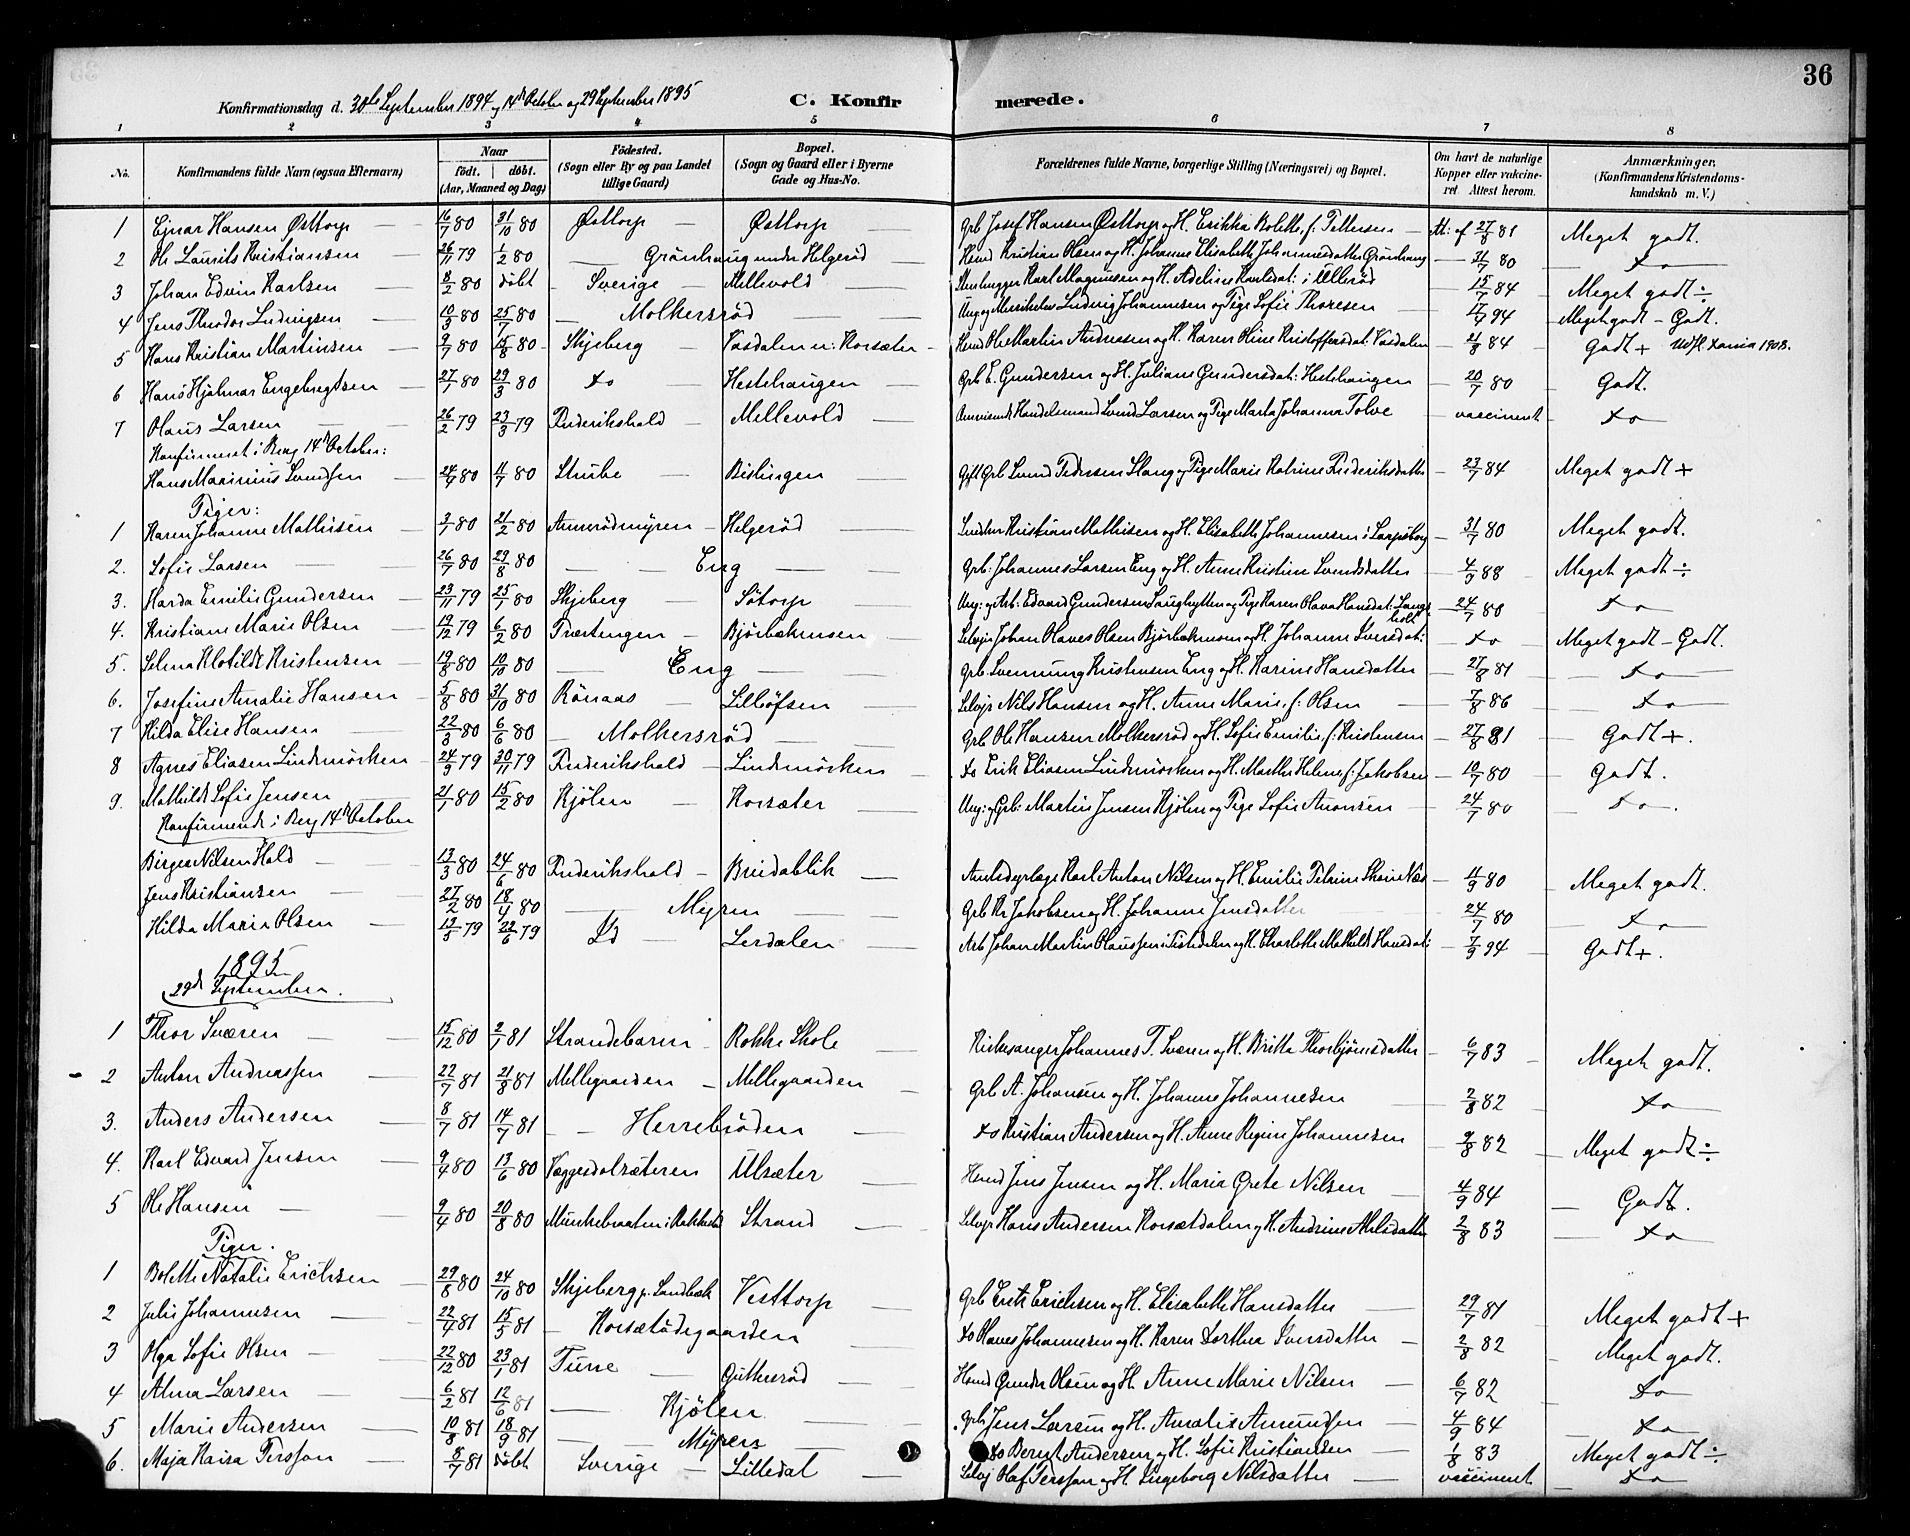 36
Konfirmationsdag d. 30te September 1894 og 14de October og 29 September 1895 C. Konfirmerede.
1 2 3 4 5 6 7 8
No. Konfirmandens fulde Navn (ogsaa Efternavn) Naar født. døbt. (Aar, Maaned og Dag) Fødested. (Sogn eller By og paa Landet tillige Gaard) Bopæl. (Sogn og Gaard eller i Byerne Gade og Hus-No. Forældrenes fulde Navne, borgerlige Stilling (Næringsvei) og Bopæl. Om havt de naturlige Kopper eller vaccineret Attest herom. Anmærkninger. (Konfirmandens Kristendomskundskab m. V.)
1 Ejnar Hansen Østtorp 16/7 80 31/10 80 Østtorp Østtorp Grb Josef Hansen Østtorp og H. Erikka Bolette f: Pettersen Att: af 27/8 81 Meget godt.
2 Ole Laurits Kristiansen 26/11 79 1/2 80 Grönhaug under Helgeröd Hmd Kristian Olsen og H. Johanne Elisabeth Johannesdatter Grönhaug 21/7 80 do
3 Johan Edvin Karlsen 8/2 80 döbt Sverige Mellevold Stenhugger Karl Magnusen og H. Adeline Karlsdat: i Ulleröd 15/7 84 Meget godt ÷
4 Jens Theodor Ludvigsen 10/3 80 25/7 80 Molkersröd Ung og Ludvig Johannesen og Pige Sofie Thoresen 17/7 94 Meget godt - Godt.
5 Hans Kristian Martinsen 9/7 80 15/8 80 Skjeberg Vasdalen u: Korsæter Hmd Ole Martin Andresen og H. Karen Oline Kristoffersdat: Vasdalen 21/8 84 Godt + 1908.
6 Hans Hjalmar Engebregtsen 27/1 80 29/3 80 do Hestehaugen Grb E. Gundersen og H. Juliane Gundersdat: Hestehaugen 20/7 80 Godt.
7 Olaus Larsen 26/2 79 23/3 79 Frederikshald Mellevold Handelsmand Svend Larsen og Pige Marta Johanna Tolve vaccineret do
Konfirmeret i Berg 14de October:
Hans Marinius Svendsen 24/4 80 11/7 80 Stube Bislingen Gift Grb Svend Pedersen Slang og Pige Marie Katrine Frederiksdatter 23/7 84 Meget godt +
Piger:
1 Karen Johanne Mathisen 3/1 80 21/2 80 Annerödmyren Helgeröd Kristian Mathisen og H. Elisabeth Johannesen i Sarpsborg 31/7 80 Meget godt.
2. Sofie Larsen 26/7 80 29/8 80 Eng Grb: Johannes Larsen Eng og H. Anne Kristine Svendsdatter 4/9 88 Meget godt ÷
3. Harda Emilie Gundersen 23/11 79 25/1 80 Skjeberg Sötorp Ung: og Arb: Edvard Gundersen Saughytten og Pige Karen Olava Hansdat: Langholt 24/7 80 do
4. Kristiane Marie Olsen 19/12 79 6/2 80 Trætengen Björbækmosen Selvejer Johan Olaves Olsen Björbækmosen og H. Johanne Sversdat: do Meget godt - Godt.
5. Selma Klotilde Kristensen 19/8 80 10/10 80 Eng Grb. Svennung Kristensen Eng og H. Karine Hansdatter 27/8 81 do
6. Josefine Amalie Hansen 5/8 80 31/10 80 Rönaas Lilböfsen Selvejr Nils Hansen og H. Anne Marie, f: Olsen 7/8 86 do
7 Hilda Elise Hansen 22/3 80 6/6 80 Molkersröd Grb Ole Hansen Molkersröd og H. Sofie Emilie f. Kristensen 27/8 81 Godt +.
8 Agnes Eliasen Lindemörken 24/9 79 30/11 79 Frederikshald Lindemörken do Erik Eliasen Lindemörken og H. Marthe Helene f: Jakobsen 10/7 80 Godt.
9. Mathilde Sofie Jensen 21/1 80 15/2 80 Kjölen Korsæter Ung: og Grb: Martin Jensen Kjölen og Pige Sofie Aronsen 24/7 80 do
Konfirmerede i Berg 14de October
Birger Nilsen Hald 13/3 80 24/6 80 Frederikshald Breidablik Amtsdyrlæge Karl Anton Nilsen og H. Emilie Petrine 11/9 80 Meget godt.
Jens Kristiansen 27/2 80 18/4 80 Myren Grb Kr Jakobsen og H. Johanne Jensdatter 24/7 80 do
Hilda Marie Olsen 13/5 79 22/6 79 Id Lerdalen Arb Johan Martin Olaussen i Tistedalen og H. Charlotte Mathilde Hansdat: 7/9 94 Godt +.
1895
29de September.
1 Thor Sværen 15/12 80 2/1 81 Strandebarm Rokke Skole Kirkesanger Johannes T. Sværen og H. Britta Thorbjörnsdatter 6/7 83 Meget godt.
2 Anton Andreassen 22/7 81 21/8 81 Mellegaarden Mellegaarden Grb A. Johansen og H. Johanne Johannesen 2/8 82 do
3. Anders Andersen 8/7 81 14/7 81 Herrebröden do Kristian Andersen og H. Anne Regine Johannesen 9/8 82 Meget godt ÷
4. Karl Edvard Jensen 9/4 80 13/6 80 Væggesdalsæteren Ulsæter Hmd Jens Jensen og H. Maria Grete Nilsen 4/9 84 Godt.
5 Ole Hansen 9/4 80 20/8 80 Munkebraaten i Strand Selvejr Hans Andersen Korsætdalen og H. Andrine Abelsdatter 2/8 83 do
Piger.
1 Bolette Natalie Erichsen 29/8 80 24/10 80 Skjeberg p. Sandbæk Vesttorp Grb Erik Erichsen og H. Elisabeth Hansdatter 29/7 81 Meget godt +
2 Julie Johannesen 22/4 81 15/5 81 Korsætödegaarden do Olaves Johannesen og H. Karen Dorthea Sversdatter 2/8 82 Meget godt.
3 Olga Sofie Olsen 22/12 80 23/1 81 Tune Gutteröd Hmd Gunder Olsen og H. Anne Marie Nilsen 6/7 82 do
4 Alma Larsen 6/2 81 12/6 81 Kjölen Grb Jens Larsen og H. Amalie Amundsen 4/9 84 do
5 Marie Andersen 10/8 81 18/9 81 Myren do Bernt Andersen og H. Sofie Kristiansen 1/8 83 Meget godt ÷
6. Maja Kaisa Persson 8/7 81 döbt Sverige Lilledal Selvej Olaf Persson og H. Ingeborg Nilsdatter vaccineret do